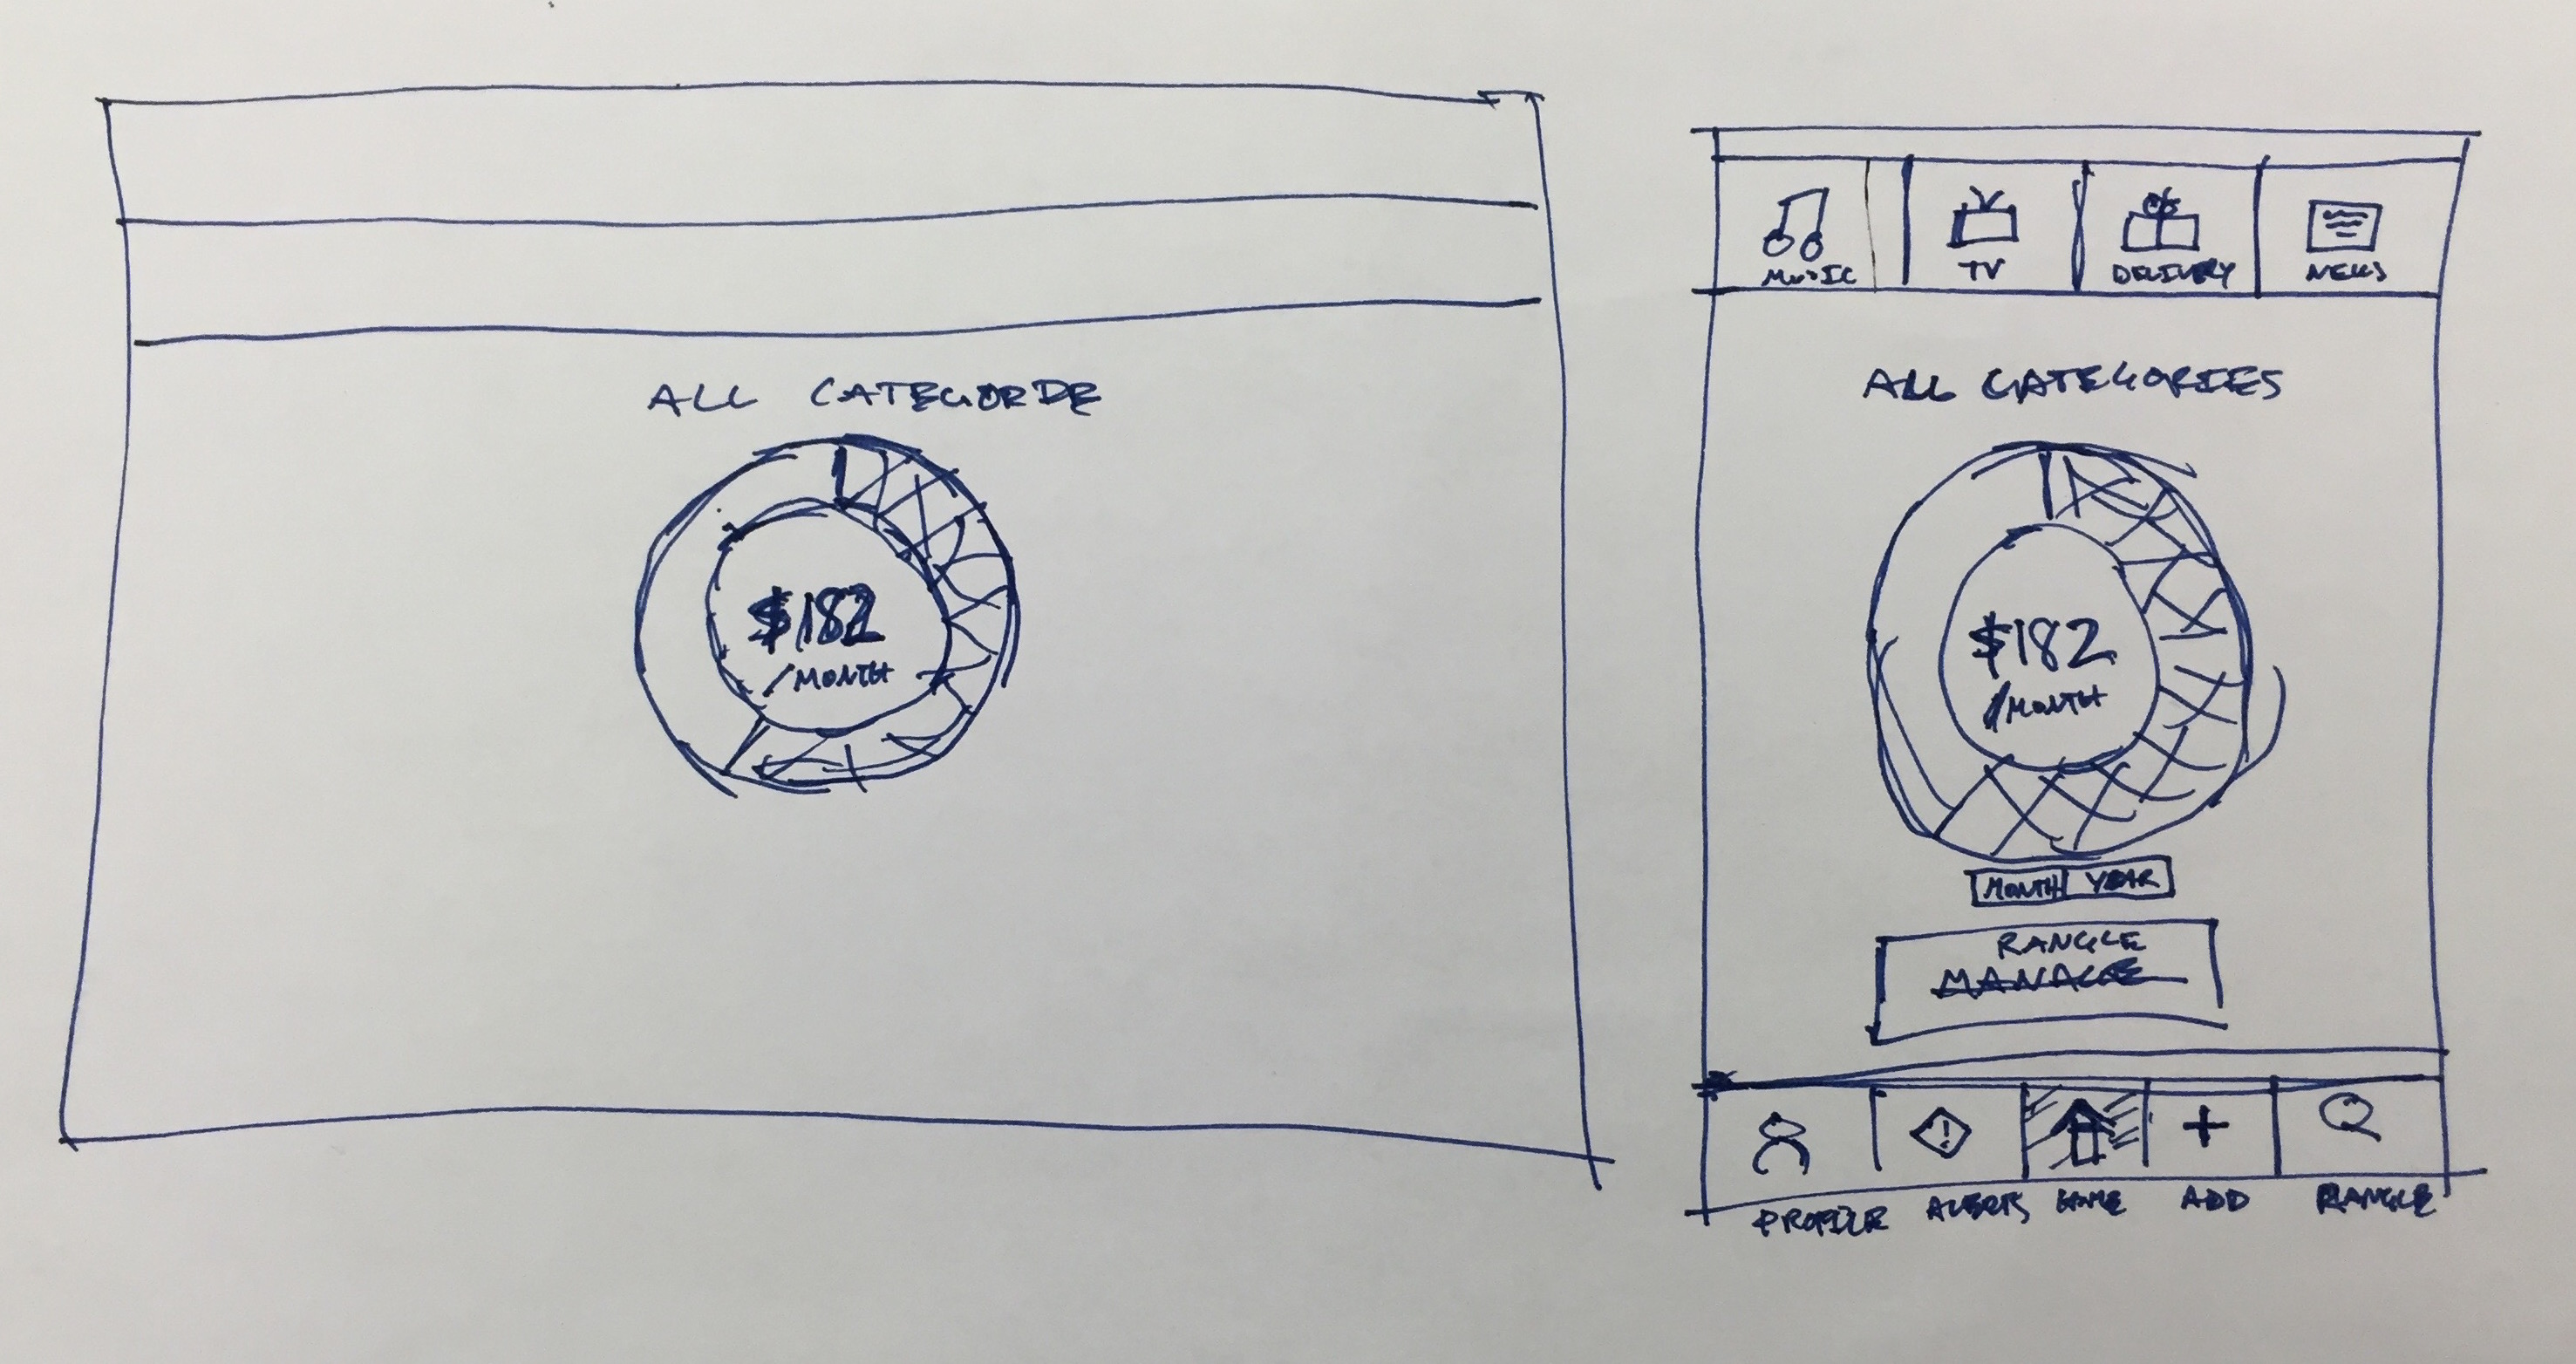 ALL CATEGORDE
$182
/MONTH
MUSIC
TV
DELIVERY
NEWS
ALL CATEGORIES
$182
/MONTH
MONTH
YEAR
RANGLE
MANAGE
PROFILE
ALERTS
HOME
ADD
RANGLE